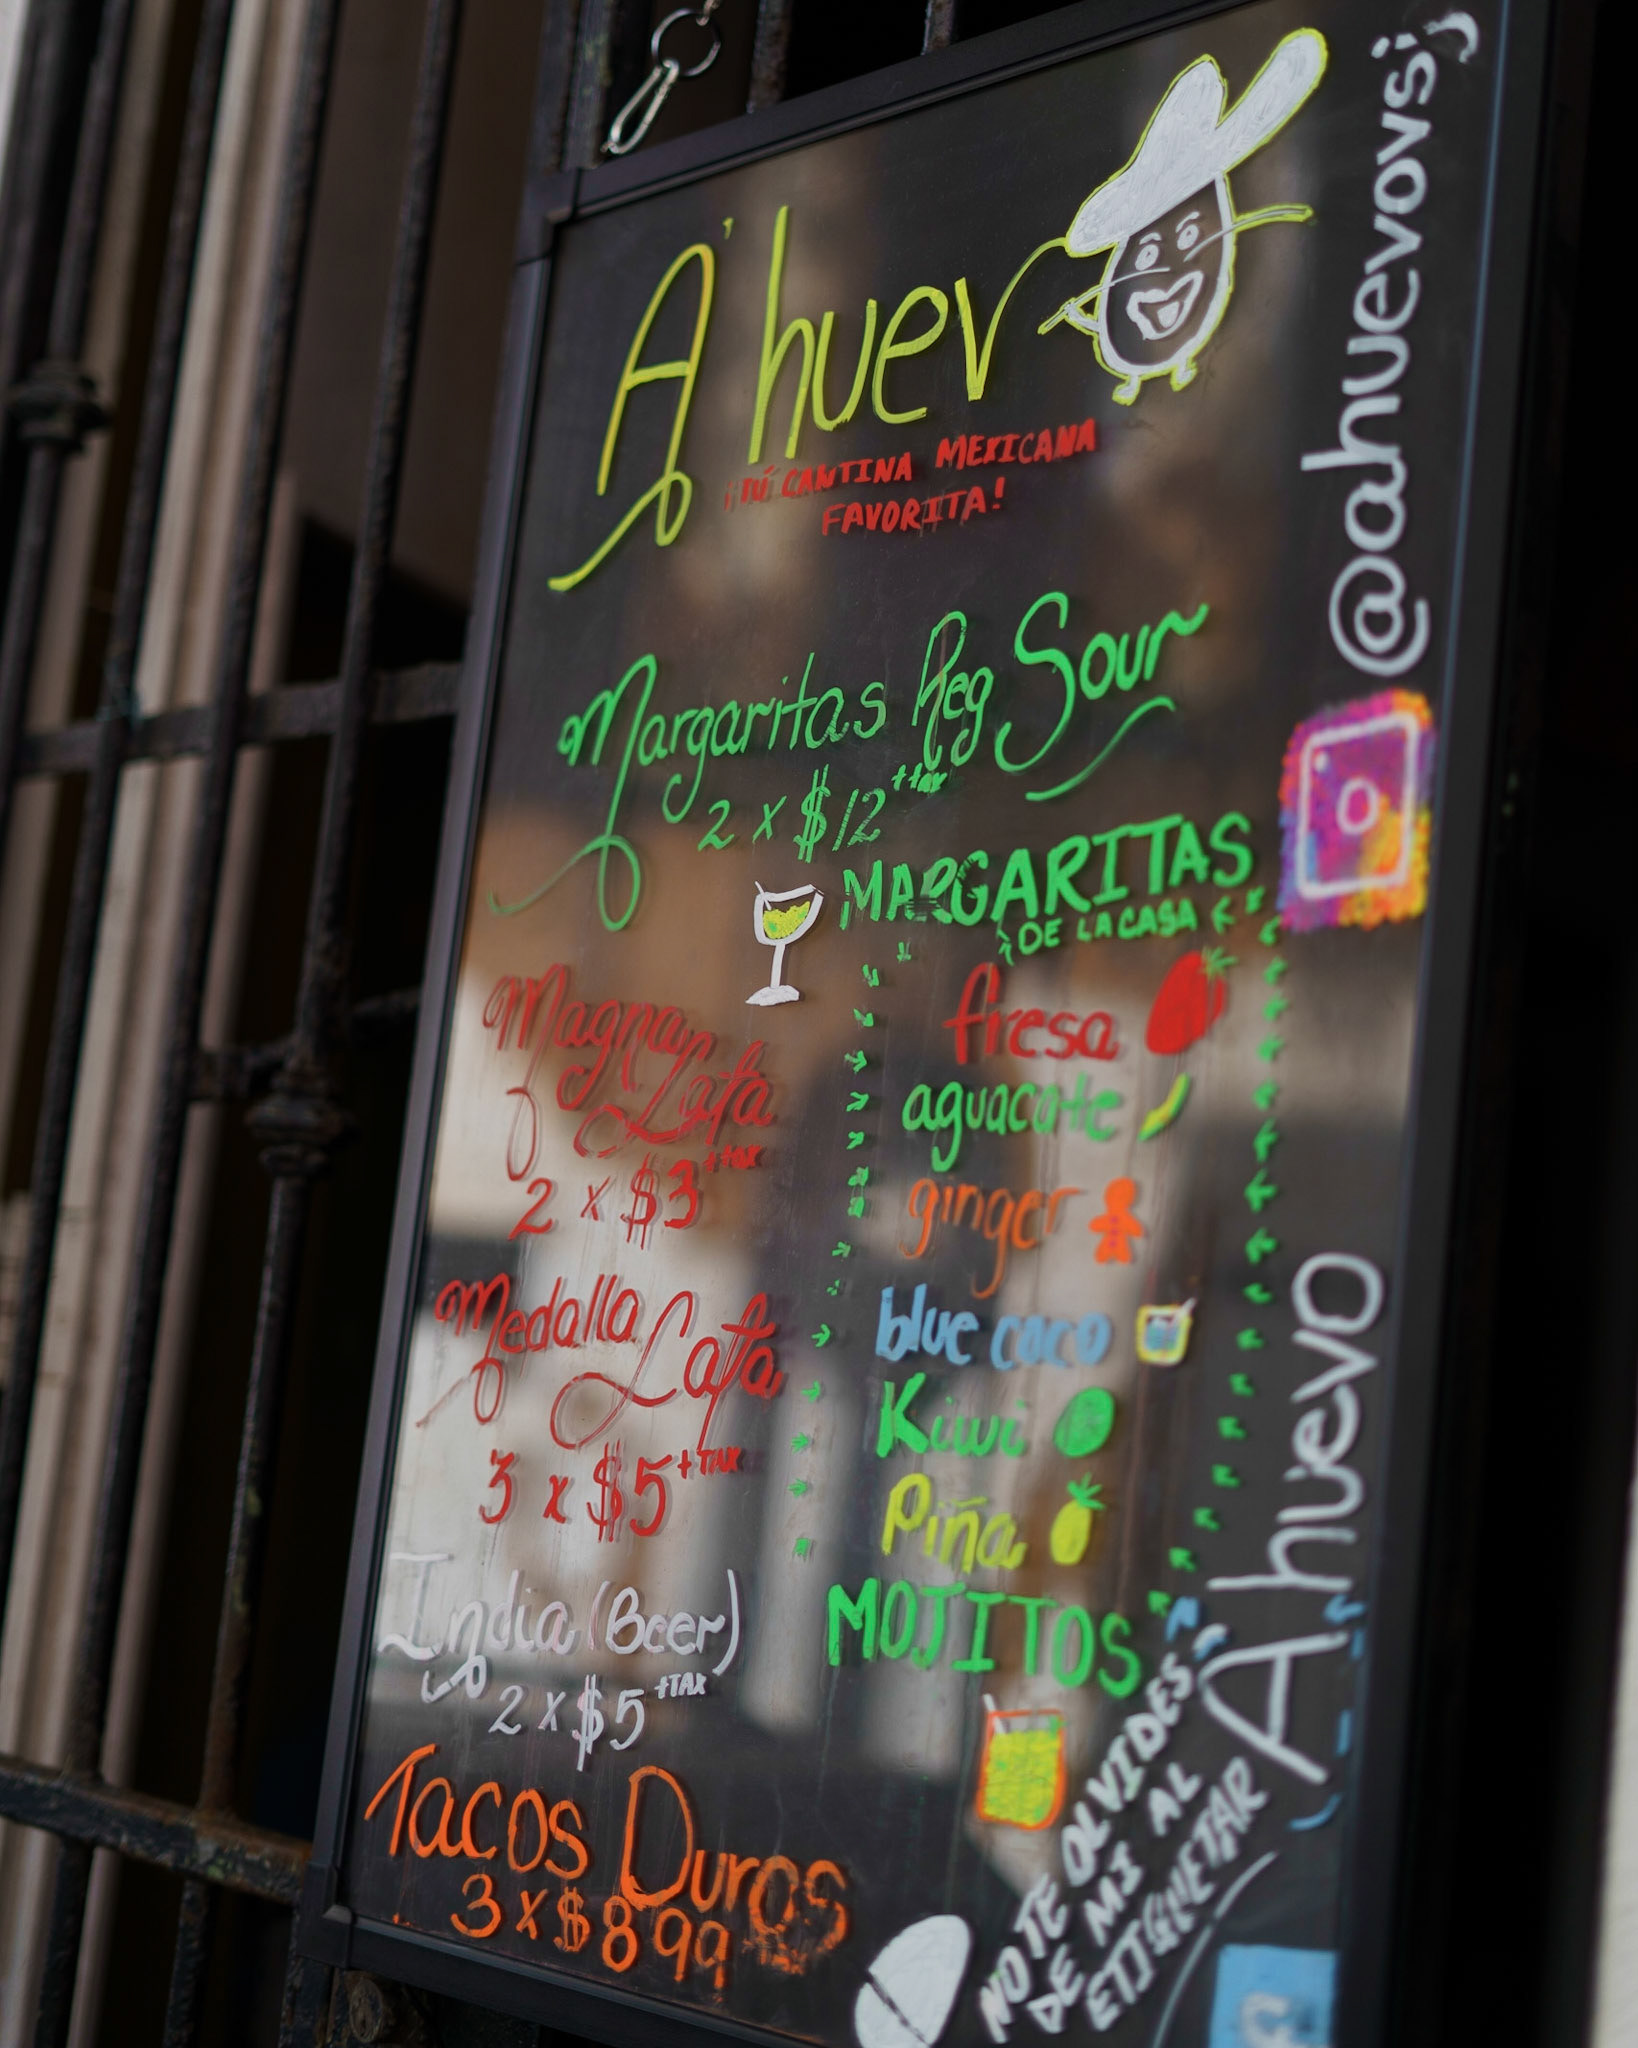 A'huevo
¡TÚ CANTINA MEXICANA
FAVORITA!
Margaritas Reg Sour
2 x $12 +tax
MARGARITAS
DE LA CASA
fresa
aguacate
ginger
blue coco
Kiwi
Piña
MOJITOS
Magna Lata
2 x $3 +tax
Medalla Lata
3 x $5 +TAX
India (Beer)
2 x $5 +TAX
Tacos Duros
3 x $8 99 +tax
@ahuevovsj
Ahuevo
NO TE OLVIDES
DE MI AL
ETIQUETAR